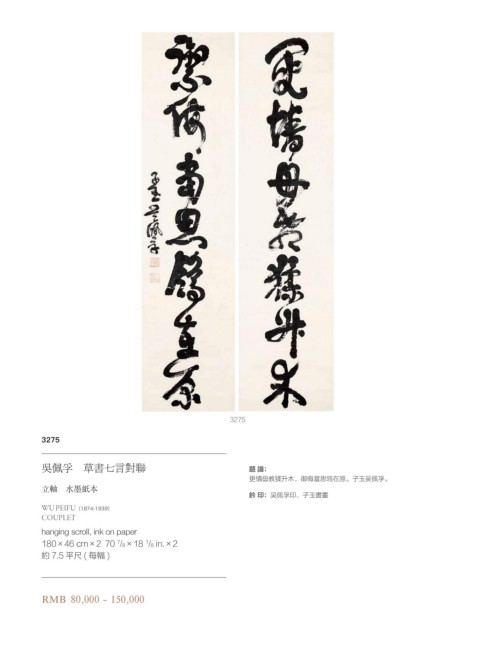 鬩墻毋教猱升木
禦侮當思鴒在原
子玉吳佩孚
3275
3275
吳佩孚 草書七言對聯
立軸 水墨紙本
WU PEIFU (1874-1939)
COUPLET
hanging scroll, ink on paper
180×46 cm×2 70 7/8×18 1/8 in.×2
約 7.5 平尺 ( 每幅 )
RMB 80,000 - 150,000
題識：
更情毋教猱升木，御侮當思鴒在原。子玉吳佩孚。
鈐印：吳佩孚印、子玉書畫